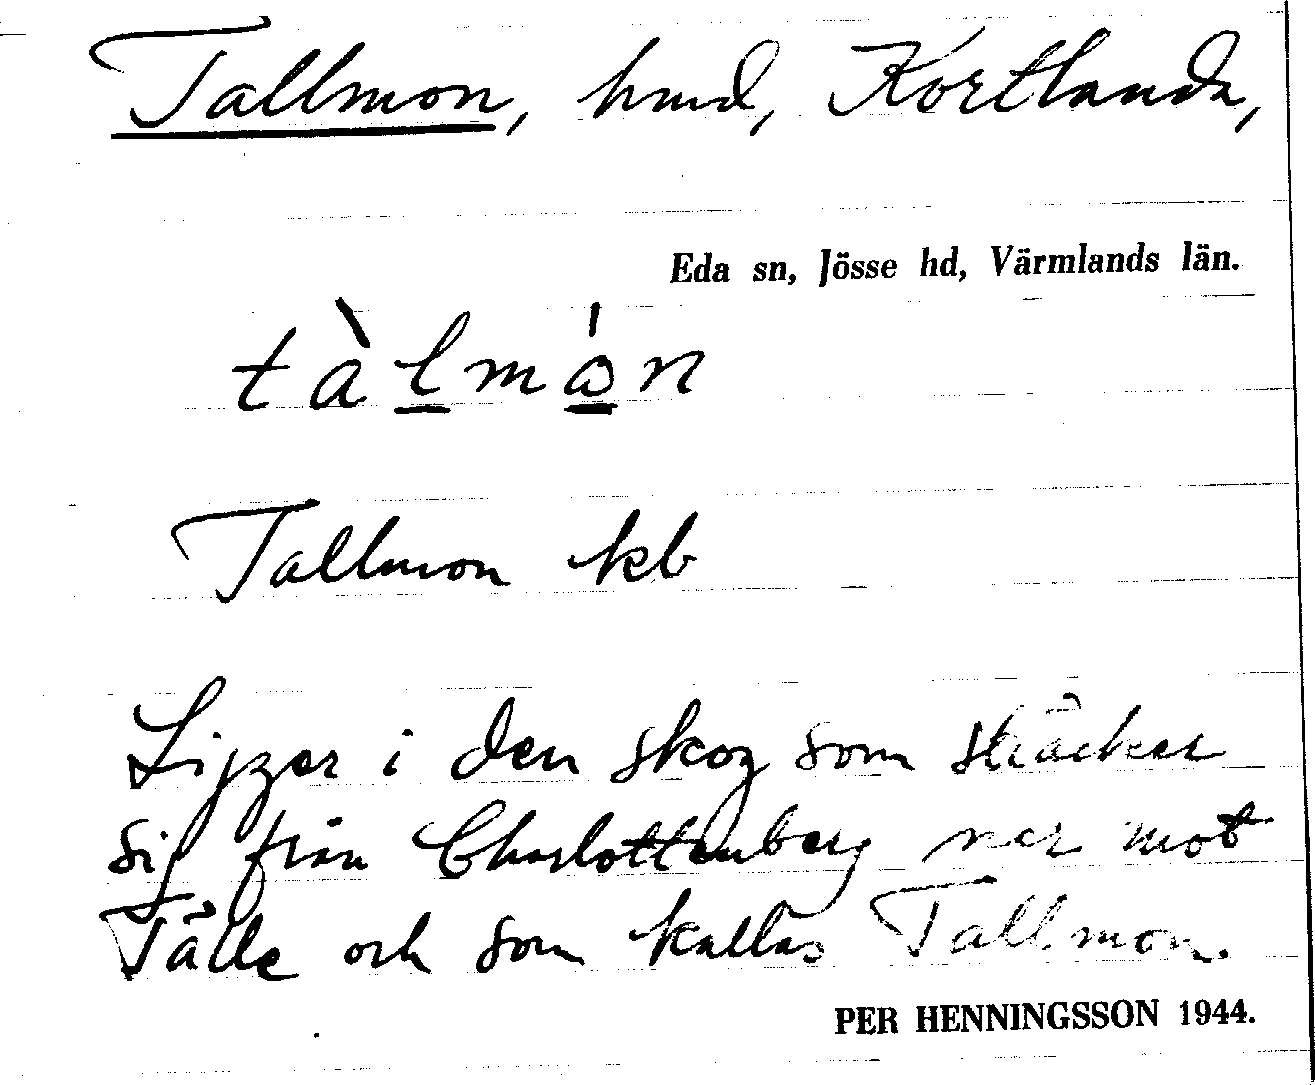 Tallmon, hmd, Kortlanda,
Eda sn, Jösse hd, Värmlands län.
tàlmón
Tallmon kb
Ligger i den skog som sträcker
sig från Charlottenberg ner mot
Tålle och som kallas Tallmon.
PER HENNINGSSON 1944.